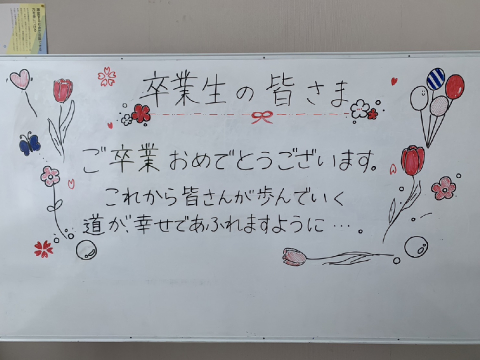 卒業生の皆さま
ご卒業おめでとうございます。
これから皆さんが歩んでいく
道が、幸せであふれますように…。